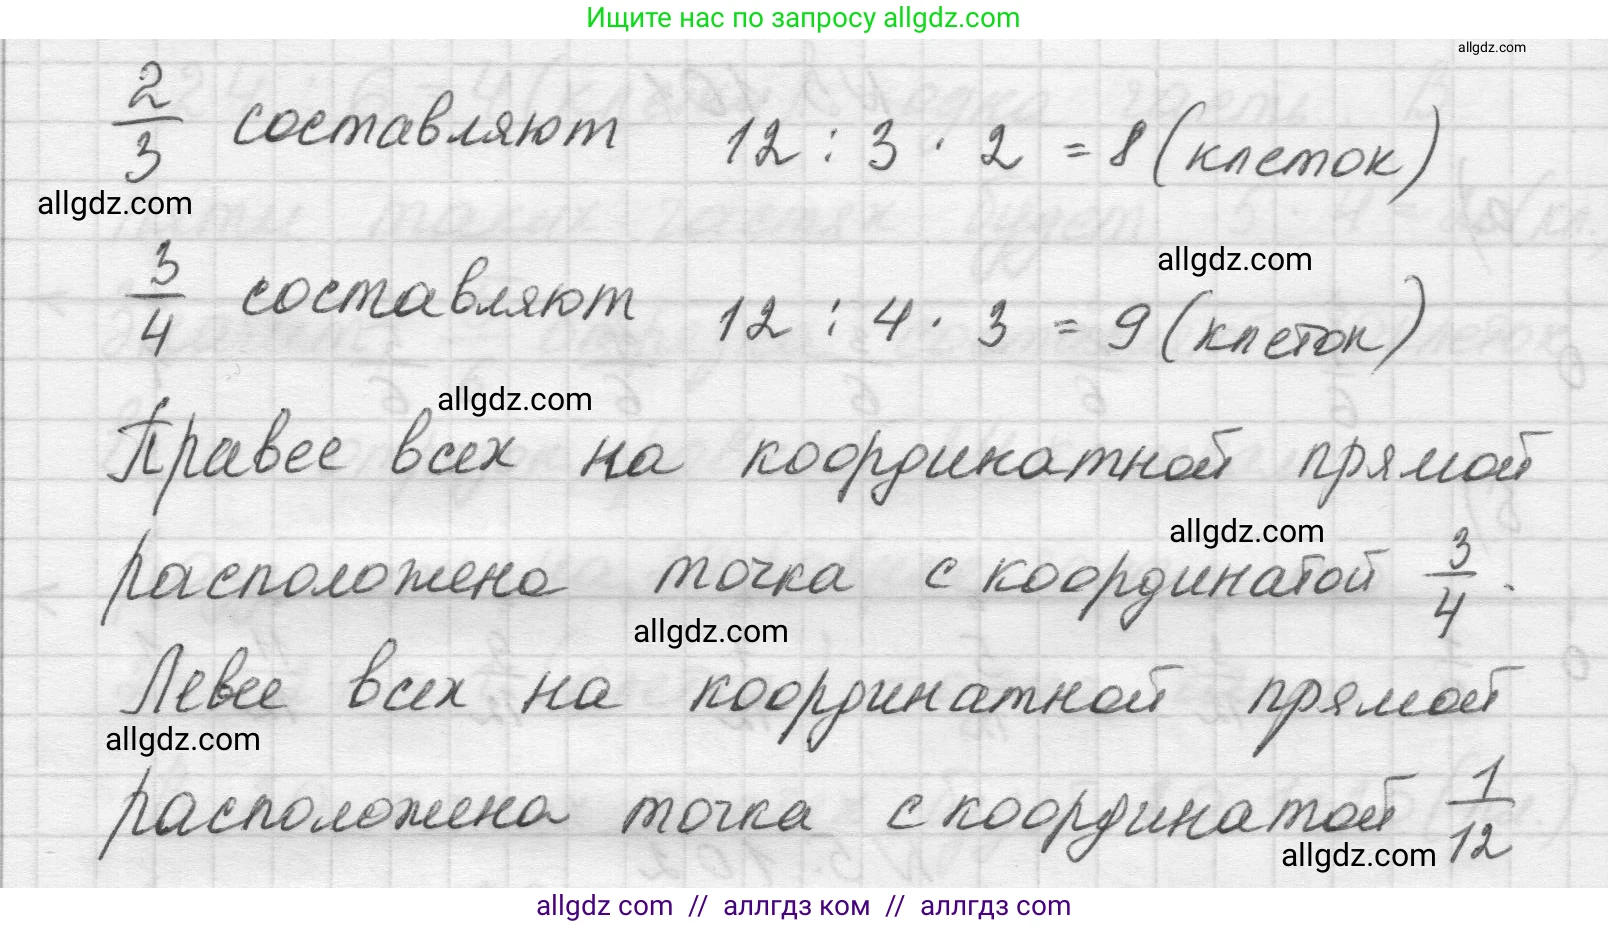 Ищите нас по запросу allgdz.com
allgdz.com
2/3 составляют 12 : 3 · 2 = 8 (клеток)
allgdz.com
allgdz.com
3/4 составляют 12 : 4 · 3 = 9 (клеток)
allgdz.com
Правее всех на координатной прямой
allgdz.com
расположена точка с координатой 3/4.
allgdz.com
Левее всех на координатной прямой
allgdz.com
расположена точка с координатой 1/12
allgdz.com
allgdz com // аллгдз ком // аллгдз com